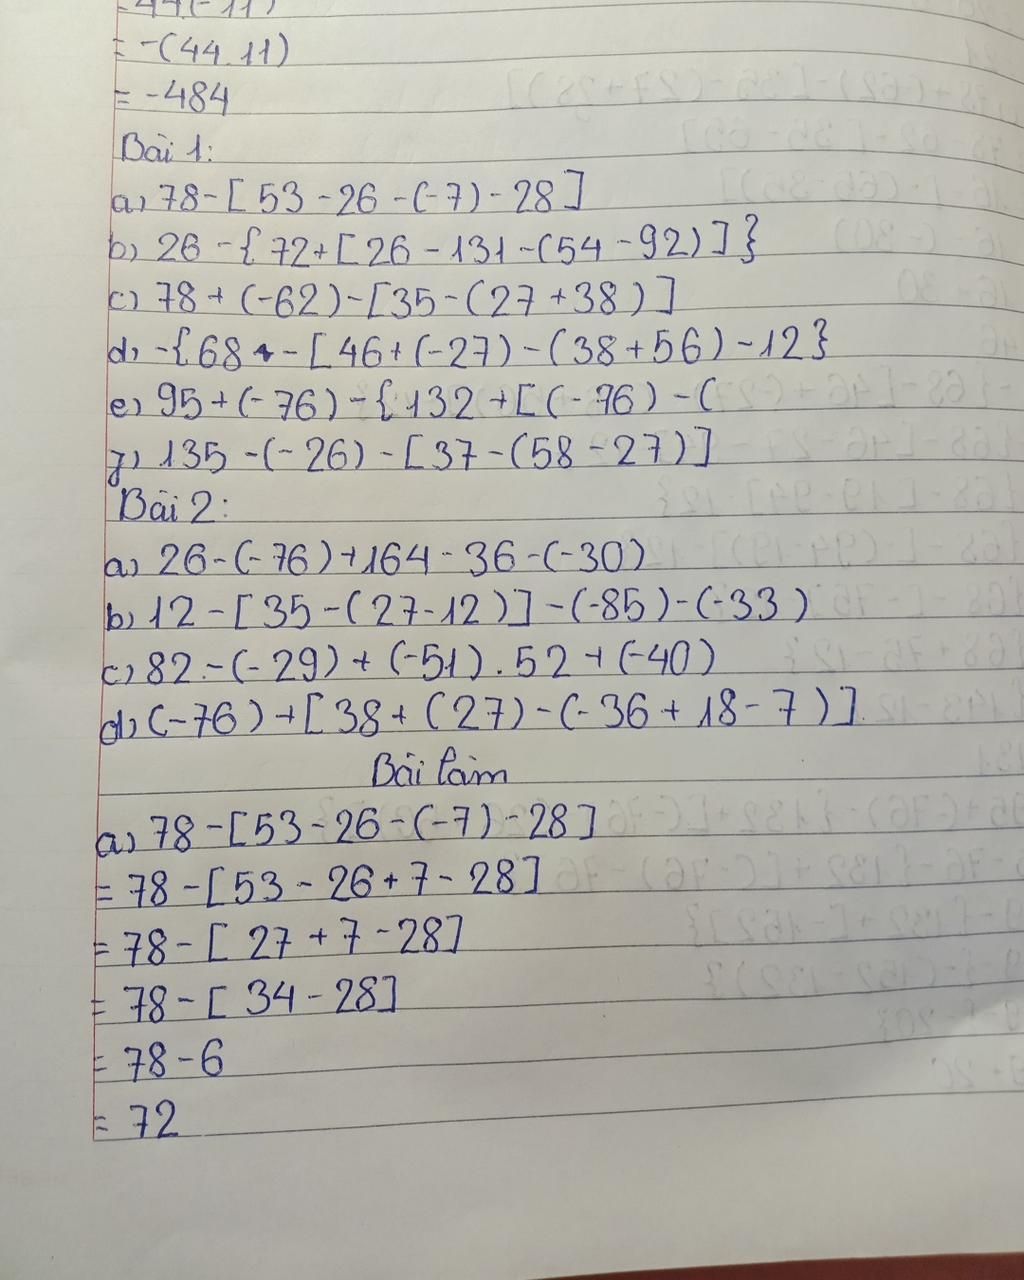 = -(44.11)
= -484
Bài 1:
a) 78-[53-26-(-7)-28]
b) 26-{72+[26-131-(54-92)]}
c) 78+(-62)-[35-(27+38)]
d) -{68-[46+(-27)-(38+56)-12}
e) 95+(-76)-{132+[(-76)-(
g) 135-(-26)-[37-(58-27)]
Bài 2:
a) 26-(-76)+164-36-(-30)
b) 12-[35-(27-12)]-(-85)-(-33)
c) 82-(-29)+(-51).52+(-40)
d) (-76)+[38+(27)-(-36+18-7)]
Bài làm
a) 78-[53-26-(-7)-28]
= 78-[53-26+7-28]
= 78-[27+7-28]
= 78-[34-28]
= 78-6
= 72